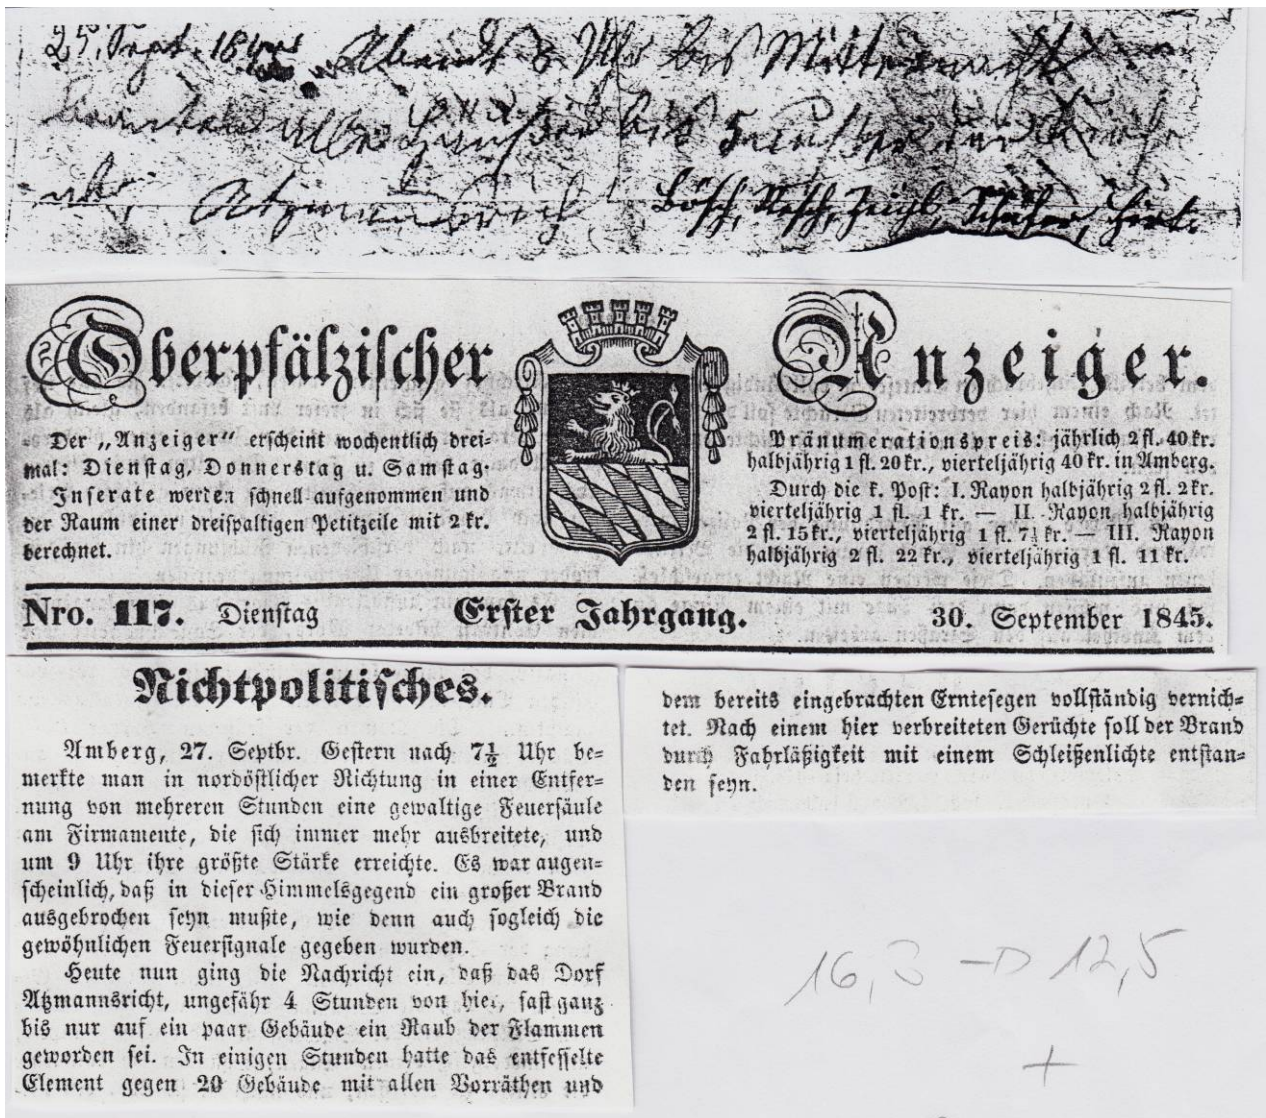 25. Sept. 184 Abends 8 Uhr bis Mitternacht
alle Häuser bis
Atzmansricht Bösch, Resch, Zeichl, Schäfer, Hirt.
Oberpfälzischer Anzeiger.
Der „Anzeiger“ erscheint wochentlich drei-
mal: Dienstag, Donnerstag u. Samstag.
Inserate werden schnell aufgenommen und
der Raum einer dreispaltigen Petitzeile mit 2 kr.
berechnet.
Pränumerationspreis: jährlich 2 fl. 40 kr.
halbjährig 1 fl. 20 kr., vierteljährig 40 kr. in Amberg.
Durch die k. Post: I. Rayon halbjährig 2 fl. 2 kr.
vierteljährig 1 fl. 1 kr. — II. Rayon halbjährig
2 fl. 15 kr., vierteljährig 1 fl. 7½ kr. — III. Rayon
halbjährig 2 fl. 22 kr., vierteljährig 1 fl. 11 kr.
Nro. 117. Dienstag Erster Jahrgang. 30. September 1845.
Nichtpolitisches.
Amberg, 27. Septbr. Gestern nach 7½ Uhr be-
merkte man in nordöstlicher Richtung in einer Entfer-
nung von mehreren Stunden eine gewaltige Feuersäule
am Firmamente, die sich immer mehr ausbreitete, und
um 9 Uhr ihre größte Stärke erreichte. Es war augen-
scheinlich, daß in dieser Himmelsgegend ein großer Brand
ausgebrochen seyn mußte, wie denn auch sogleich die
gewöhnlichen Feuersignale gegeben wurden.
Heute nun ging die Nachricht ein, daß das Dorf
Atzmannsricht, ungefähr 4 Stunden von hier, fast ganz
bis nur auf ein paar Gebäude ein Raub der Flammen
geworden sei. In einigen Stunden hatte das entfesselte
Element gegen 20 Gebäude mit allen Vorräthen und
dem bereits eingebrachten Erntesegen vollständig vernich-
tet. Nach einem hier verbreiteten Gerüchte soll der Brand
durch Fahrläßigkeit mit einem Schleißenlichte entstan-
den seyn.
16,3 → 12,5
+